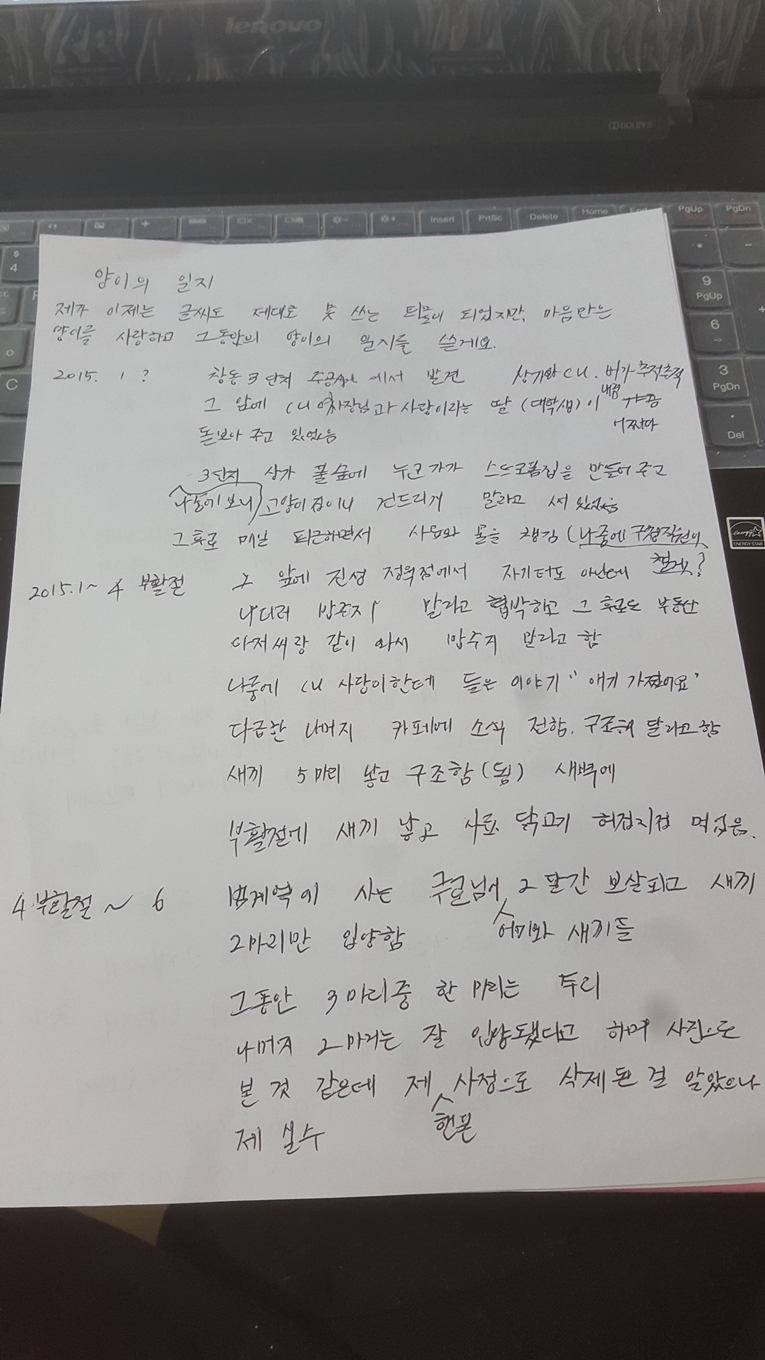 lenovo
DOLBY
Insert
PrtSc
Delete
Home
PgUp
PgDn
9
PgUp
6
3
PgDn
Del
4
C
ENERGY STAR
양이의 일지
제가 이제는 글씨도 제대로 못 쓰는 되었지만, 마음만은
양이를 사랑하고 그동안의 양이의 일지를 쓸게요.
2015. 1 ? 창동 3단지 주공 에서 발견 상가와 CU. 비가 추적추적
그 앞에 CU 여사장님과 사람이라는 딸 (대학생)이 가끔
돌보아 주고 있었음
3단지 상가 풀숲에 누군가가 스티로폼집을 만들어 주고
나중에 보니 고양이집이니 건드리지 말라고 써 있었음
그 후로 매일 퇴근하면서 사료와 물을 챙김 (나중에
2015.1~4 부활절 그 앞에 진성 정육점에서 자기 터도 아닌데
나더러 밥주지 말라고 협박하고 그 후로도 부동산
아저씨랑 같이 와서 밥주지 말라고 함
나중에 CU 사람이한테 들은 이야기 "애기 가졌어요"
다급한 나머지 카페에 소식 전함. 구조해 달라고 함
새끼 5마리 낳고 구조함(됨) 새벽에
부활절에 새끼 낳고 사료, 닭고기 허겁지겁 먹었음.
4 부활절 ~ 6 범계역에 사는 2달간 보살피고 새끼
2마리만 입양함 어미와 새끼들
그동안 3마리중 한 마리는 두리
나머지 2마리는 잘 입양됐다고 하며 사진으로
본 것 같은데 제 사정으로 삭제된 걸 알았으나
제 실수 핸폰